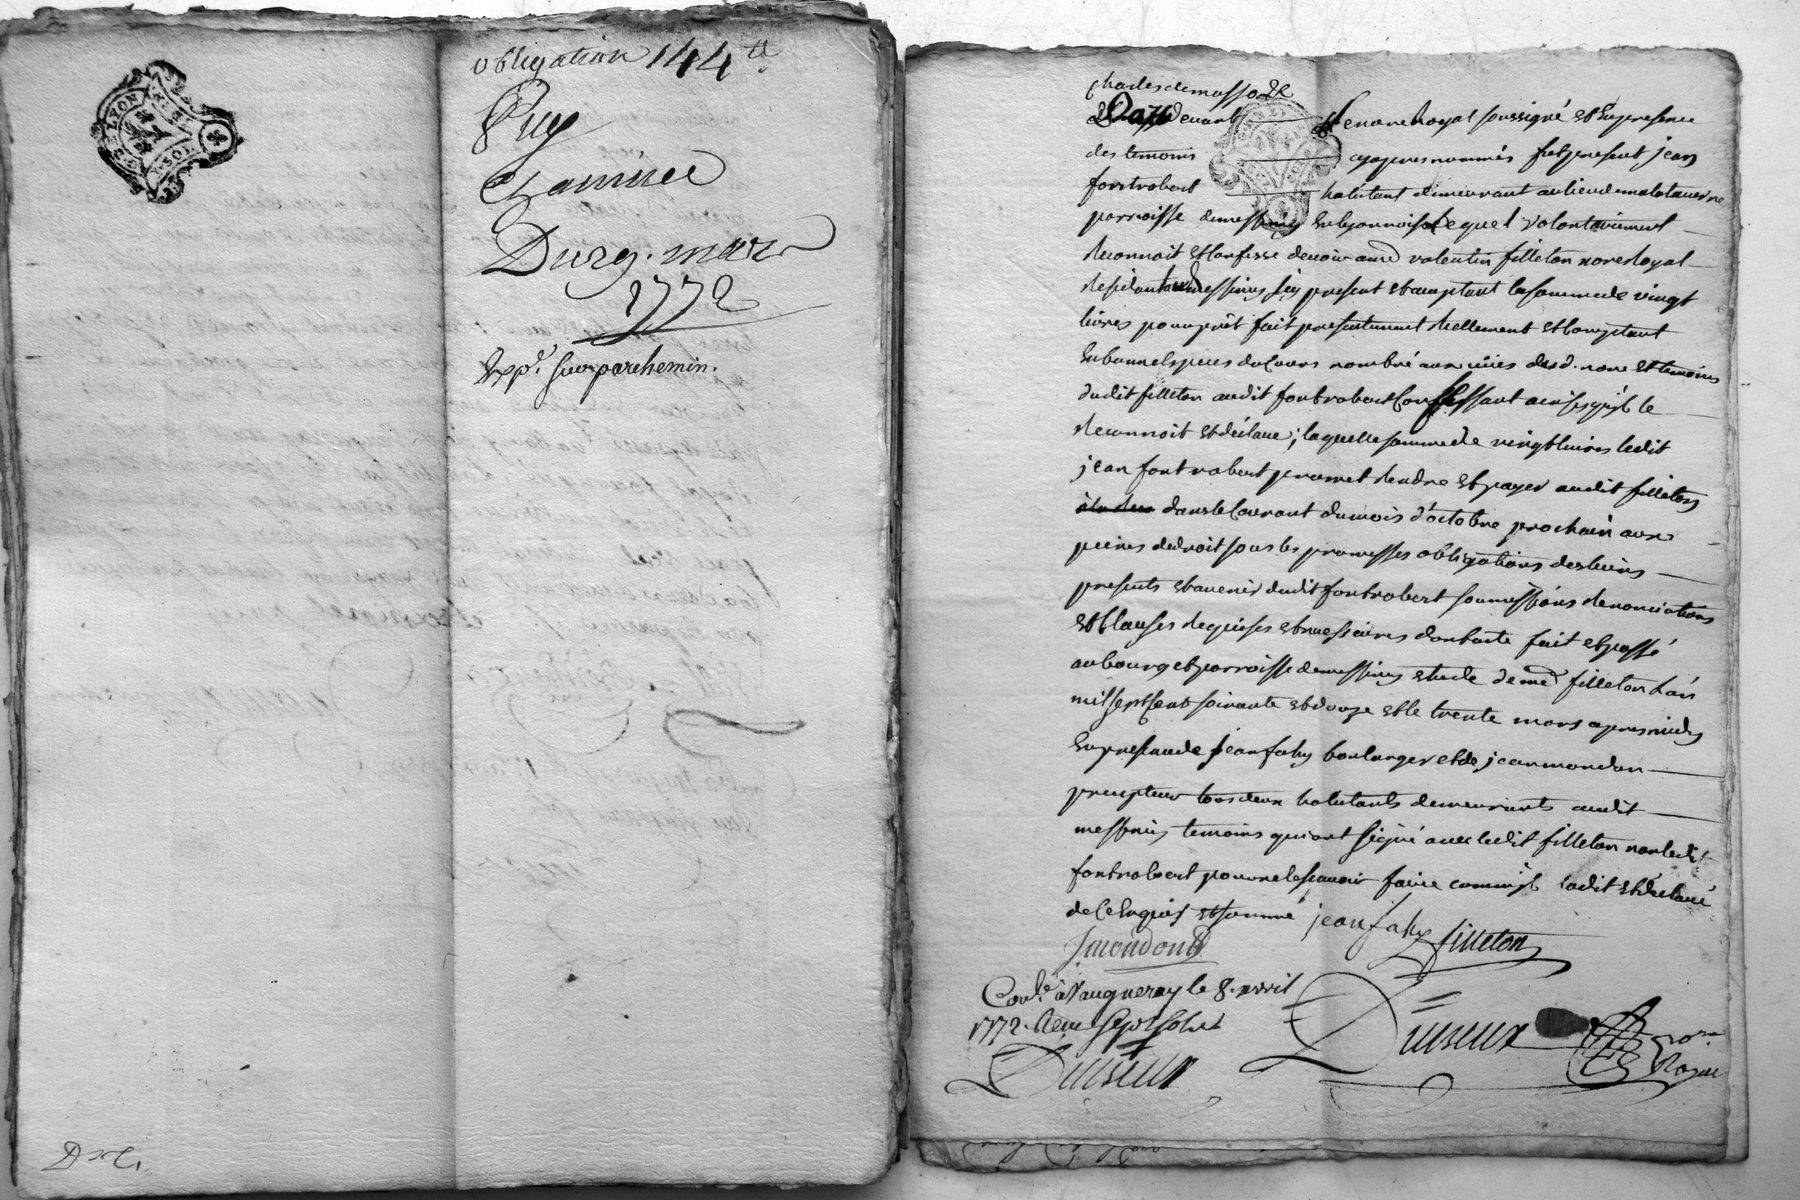 GEN. DE LYON
obligation 144 tt
Puy
Gaminee
Du 29. mars
1772
Exp.e sur parchemin.
charles demasso
Pardevant le notaire Royal soussigné et En presence
des temoins cyapres nommés fut present jean
fontrobert habitant demeurant au lieu de malataverne
parroisse de messimy En lyonnois lequel volontairement
Reconnoit et Confesse devoir a me valentin filleton nore Royal
Residant aud messimy Icy present et acceptant la somme de vingt
livres pour prêt fait presentement Reellement et Comptant
En bonnes Especes du Cours nombré aux vües desd. nore et temoins
dudit filleton audit fontrobert Confessant ainsi qu'il le
Reconnoit et declare; laquelle somme de vingt livres ledit
jean fontrobert promet Rendre et payer audit filleton
dans le Courant du mois d'octobre prochain aux
peines de droit sous les promesses obligations des biens
presents et avenir dudit fontrobert soumissions Renonciations
et Clauses Requises et necessaires dont acte fait et passé
au bourg et parroisse de messimy etude de me filleton L'an
mil sept Cent soixante et douze et le trente mars apres midy
En presence de jean fahy boulanger et de jean mondon
precepteur tous deux habitants demeurants audit
messimy temoins qui ont signé avec ledit filleton non ledit
fontrobert pour ne le sçavoir faire comme il l'a dit et declaré
de Ce Enquis et sommé jean fahy
Jmondon filleton
Conlé à Vaugneray le 8. avril
1772. Reçu sept sols Duiseux nore
Duiseux Royal